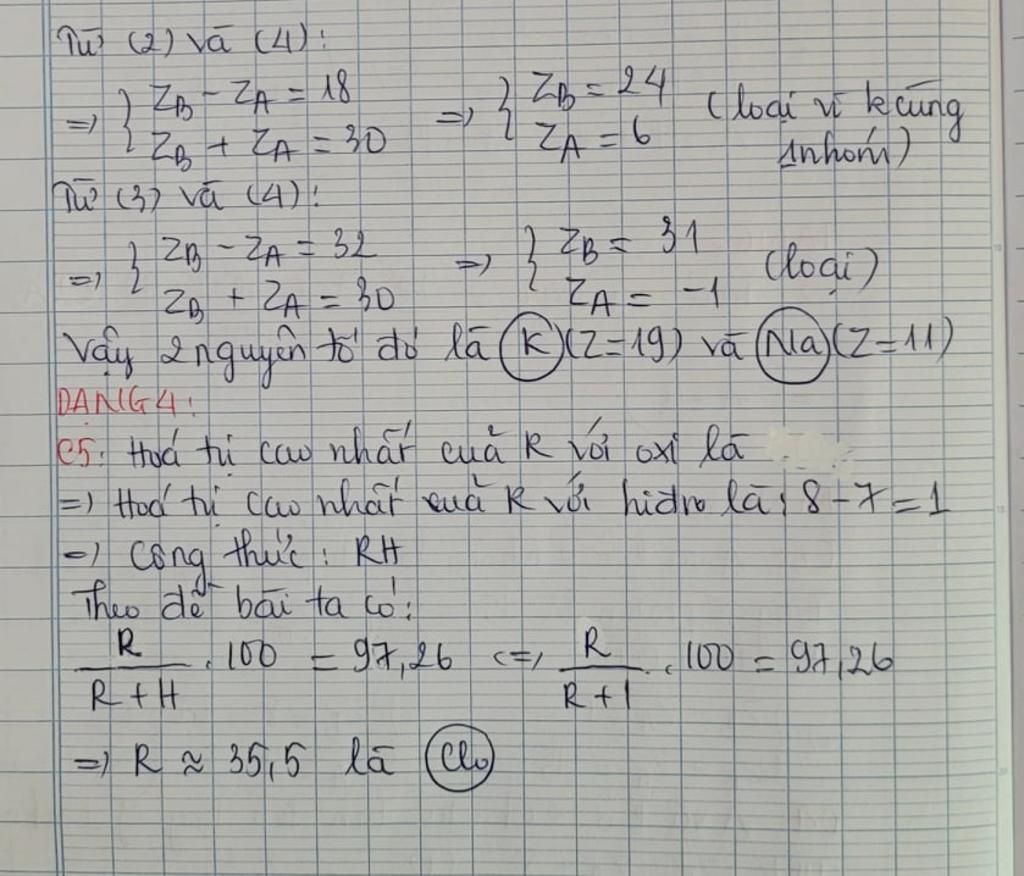 Từ (2) và (4):
=> { Z_B - Z_A = 18 => { Z_B = 24 (loại vì k cùng
Z_B + Z_A = 30 Z_A = 6 1 nhóm)
Từ (3) và (4):
=> { Z_B - Z_A = 32 => { Z_B = 31 (loại)
Z_B + Z_A = 30 Z_A = -1
Vậy 2 nguyên tố đó là K (Z=19) và Na (Z=11)
DẠNG 4:
C5: Hoá trị cao nhất cuả R với oxi là
=> Hoá trị cao nhất cuả R với hiđro là: 8 - 7 = 1
=> Công thức: RH
Theo đề bài ta có:
R/(R + H) . 100 = 97,26 <=> R/(R + 1) . 100 = 97,26
=> R ≈ 35,5 là Clo